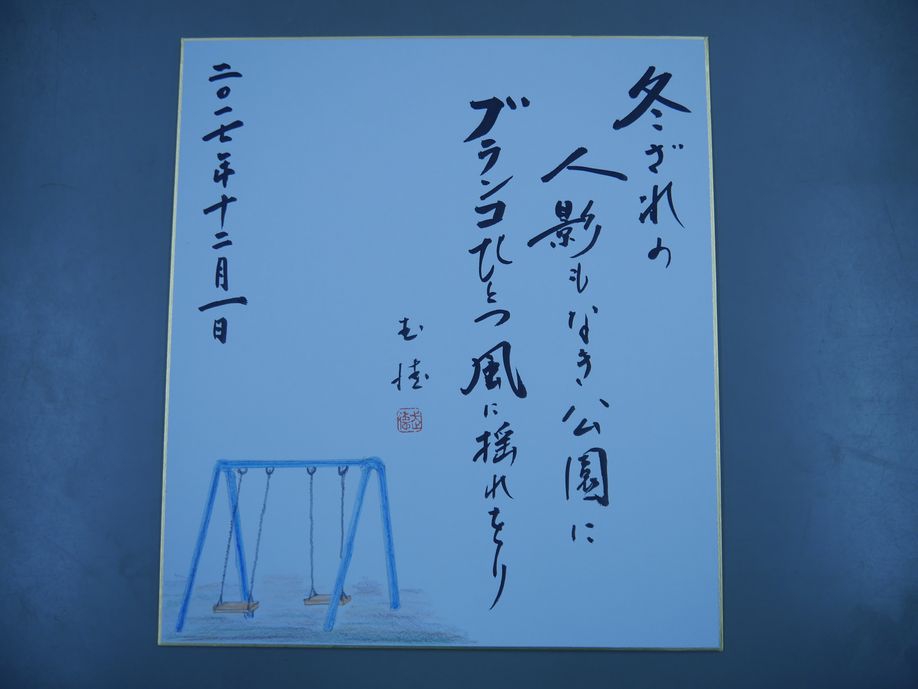 冬ざれの
人影もなき公園に
ブランコひとつ風に揺れをり
二〇一七年十二月一日